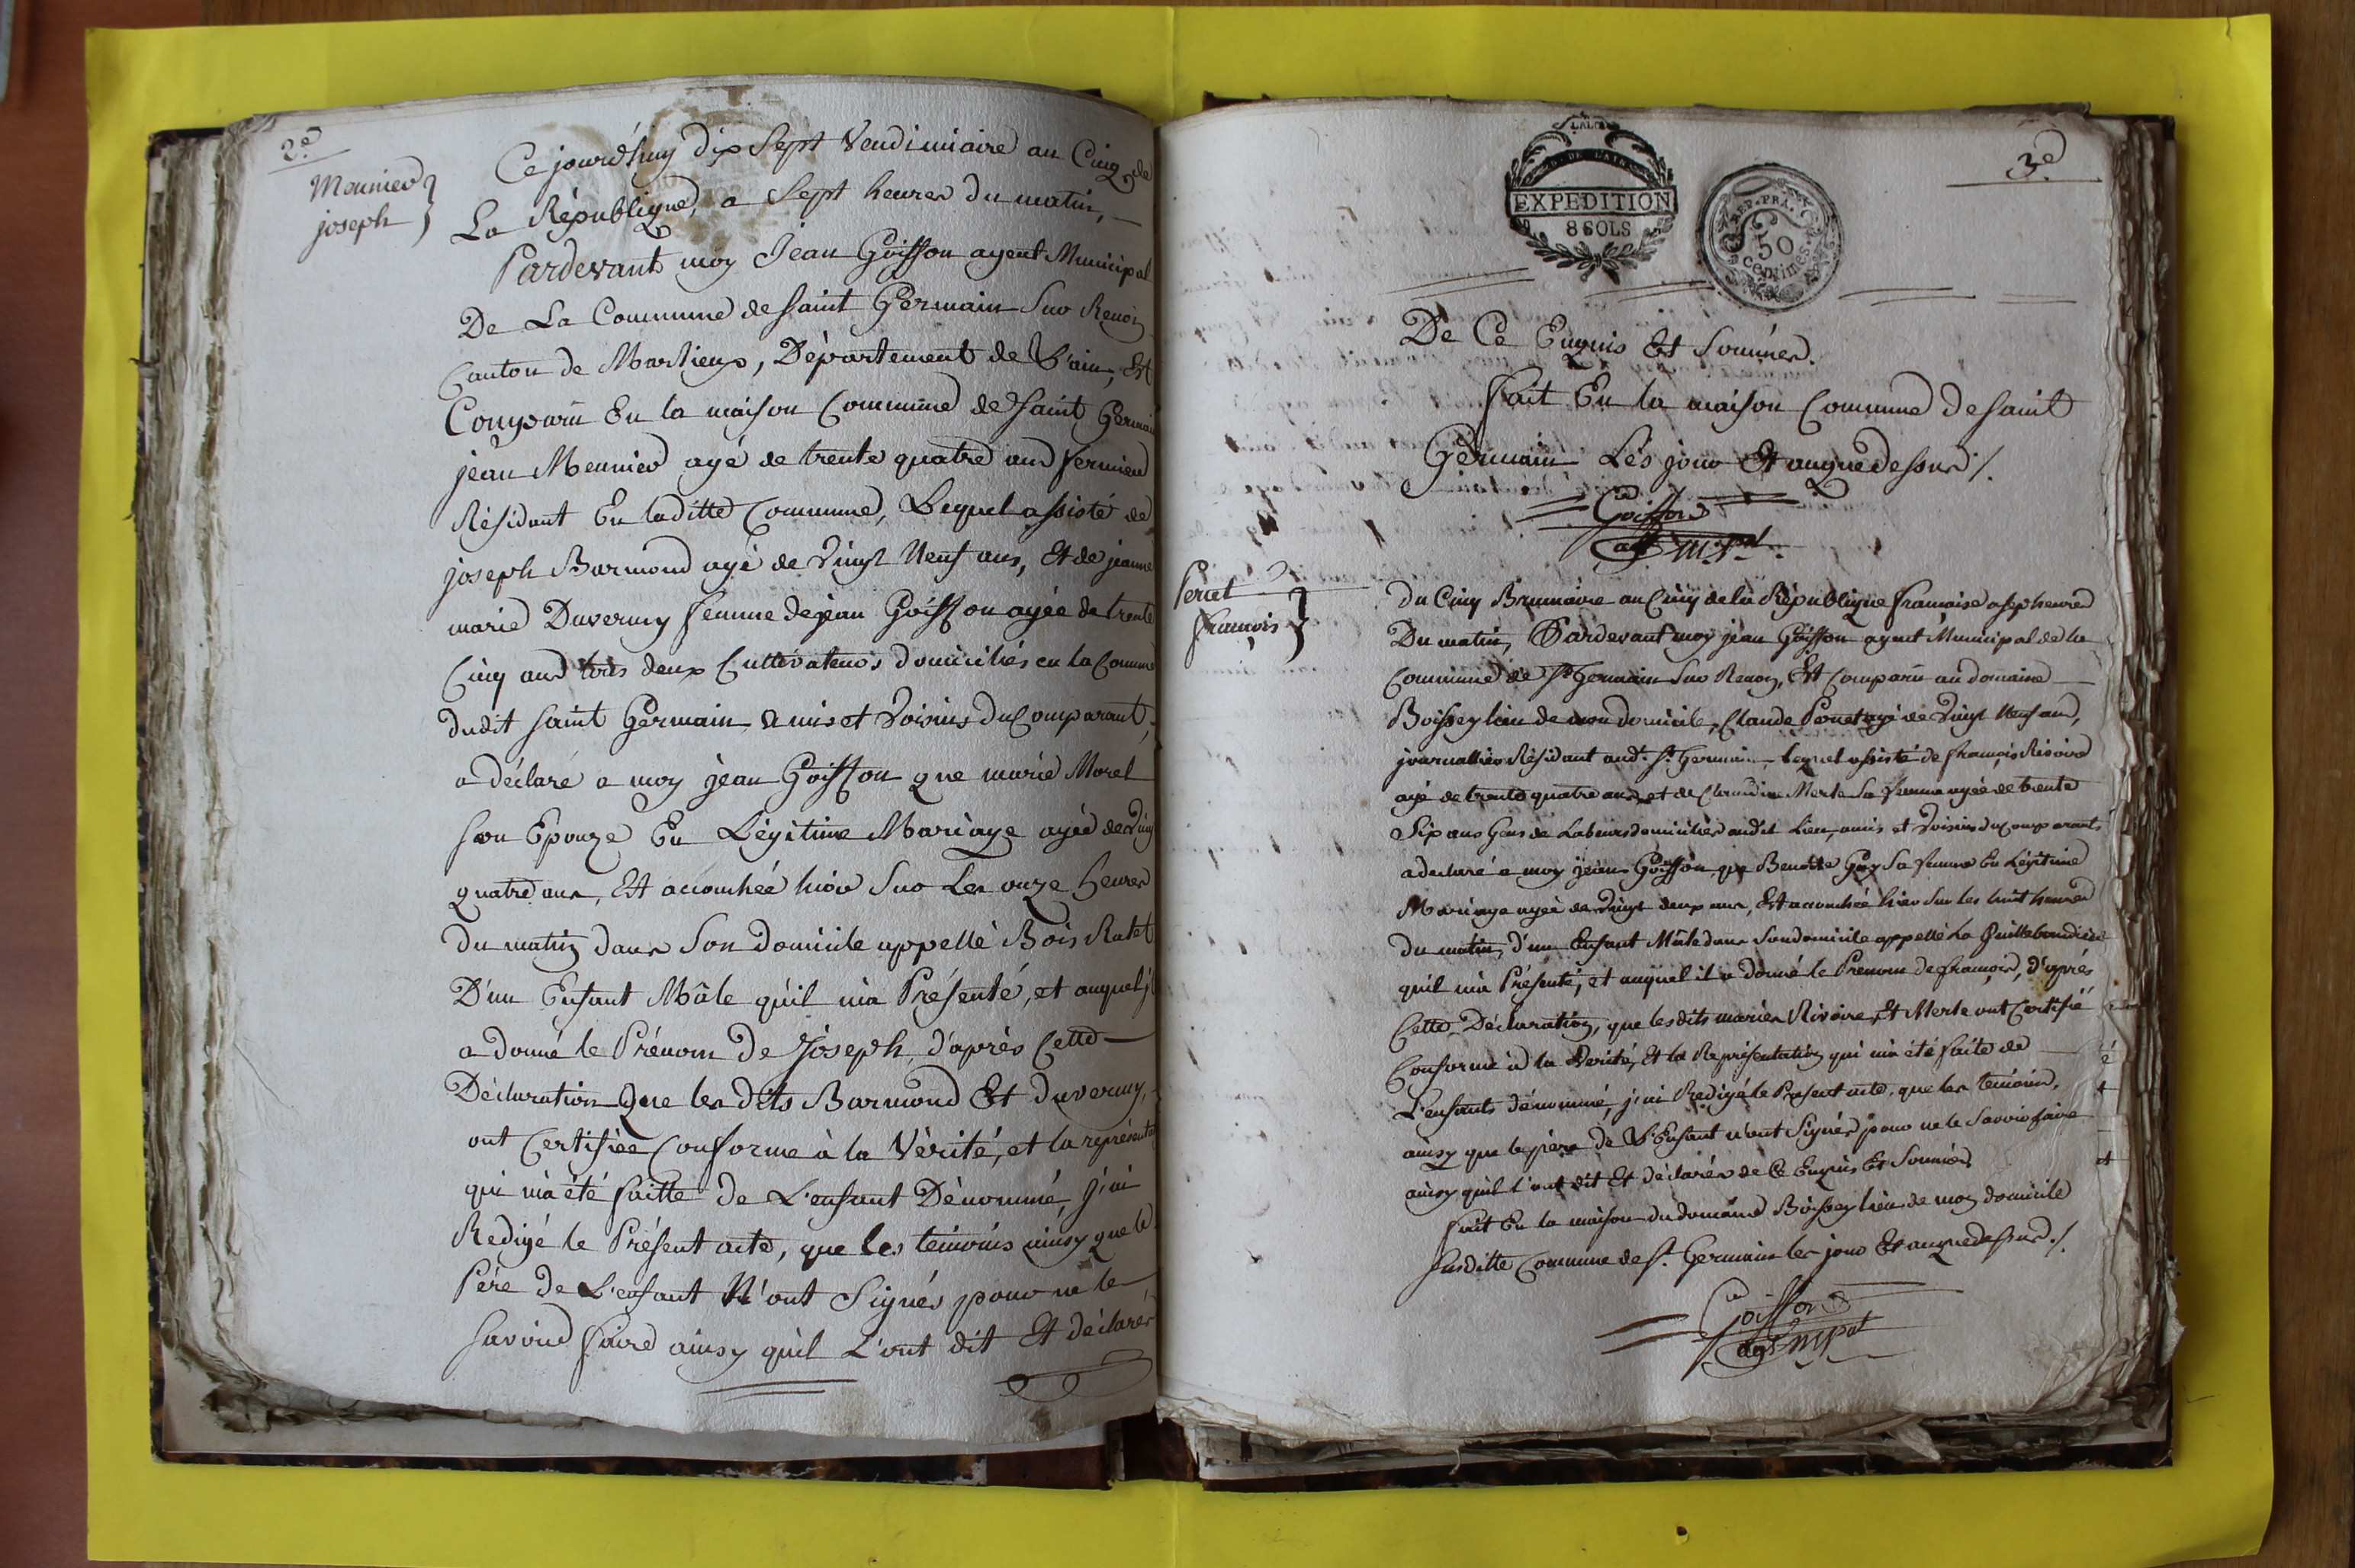 2e.
Meunier
joseph
Ce jourd'huy dix Sept Vendimiaire an Cinq de
La République, a Sept heures du matin,
Pardevant moy Jean Goiffon agent Municipal
De La Commune de Saint Germain Sur Renon
Canton de Marlieux, Département de L'ain, Est
Comparu En la maison Commune de Saint Germain
jean Meunier agé de trente quatre ans fermier
Résidant En laditte Commune, Lequel assisté de
joseph Barmond agé de Vingt Neuf ans, Et de jeanne
marie Duverny femme de jean Goiffon agée de trente
Cinq ans tous deux Cultivateurs domiciliés en la Commune
dudit Saint Germain amis et Voisins du Comparant,
a déclaré a moy jean Goiffon que marie Morel
son Epouze En Légitime Mariage agée de Vingt
quatre ans, Est accouchée hier Sur Les onze heures
du matin dans Son domicile appellé Bois Ratet
D'un Enfant Mâle qu'il m'a Présenté, et auquel il
a donné le Prénom de Joseph d'après Cette
Déclaration Que les dits Barmond Et duverny,
ont Certifiée Conforme à la Vérité, et la représentation
qui m'a été faitte de L'enfant Dénommé, j'ai
Redigé le Présent acte, que les témoins ainsy que le
Père de L'enfant N'ont Signés pour ne le
Savoir faire ainsy qu'il L'ont dit Et déclarés
3e.
EXPEDITION
8 SOLS
REP. FRA.
50
centimes
De Ce Enquis Et Sommés.
Fait En la maison Commune de Saint
Germain Les jour Et an que dessus ./.
Goiffon
agt. mpal.
Perret
françois
Du Cinq Brumaire an Cinq de la République française a sep heures
Du matin, Pardevant moy jean Goiffon agent Municipal de la
Commune de St Germain Sur Renon, Est Comparu au domaine
Boissey lieu de mon domicile, Claude Perret agé de Vingt Neuf ans,
journallier Résidant audt. St. Germain lequel assisté de françois Rivoire
agé de trente quatre ans, et de Claudine Merle Sa femme agée de trente
Six ans Gens de Labeurs domiciliés audit Lieu, amis et Voisins du Comparant
a declaré a moy jean Goiffon que Benoitte Guy Sa femme En Légitime
Mariage agée de Vingt deux ans, Est accouchée hier Sur les huit heures
du matin, d'un Enfant Mâle dans Son domicile appellé La
qu'il m'a Présenté, et auquel il a donné le Prenom de françois, d'après
Cette Déclaration, que lesdits mariés Rivoire, Et Merle ont Certifié
Conforme à la Verité, Et la Représentation qui m'a été faite de
L'enfant dénommé, j'ai Redigé le Présent acte, que les temoins,
ainsy que le père de L'Enfant n'ont Signés pour ne le Savoir faire
ainsy qu'il l'ont dit Et déclarés de Ce Enquis Et Sommés
Fait En la maison du domaine Boissey lieu de mon domicile
Susditte Commune de St. Germain les jour Et an que dessus ./.
Goiffon
agt mpal